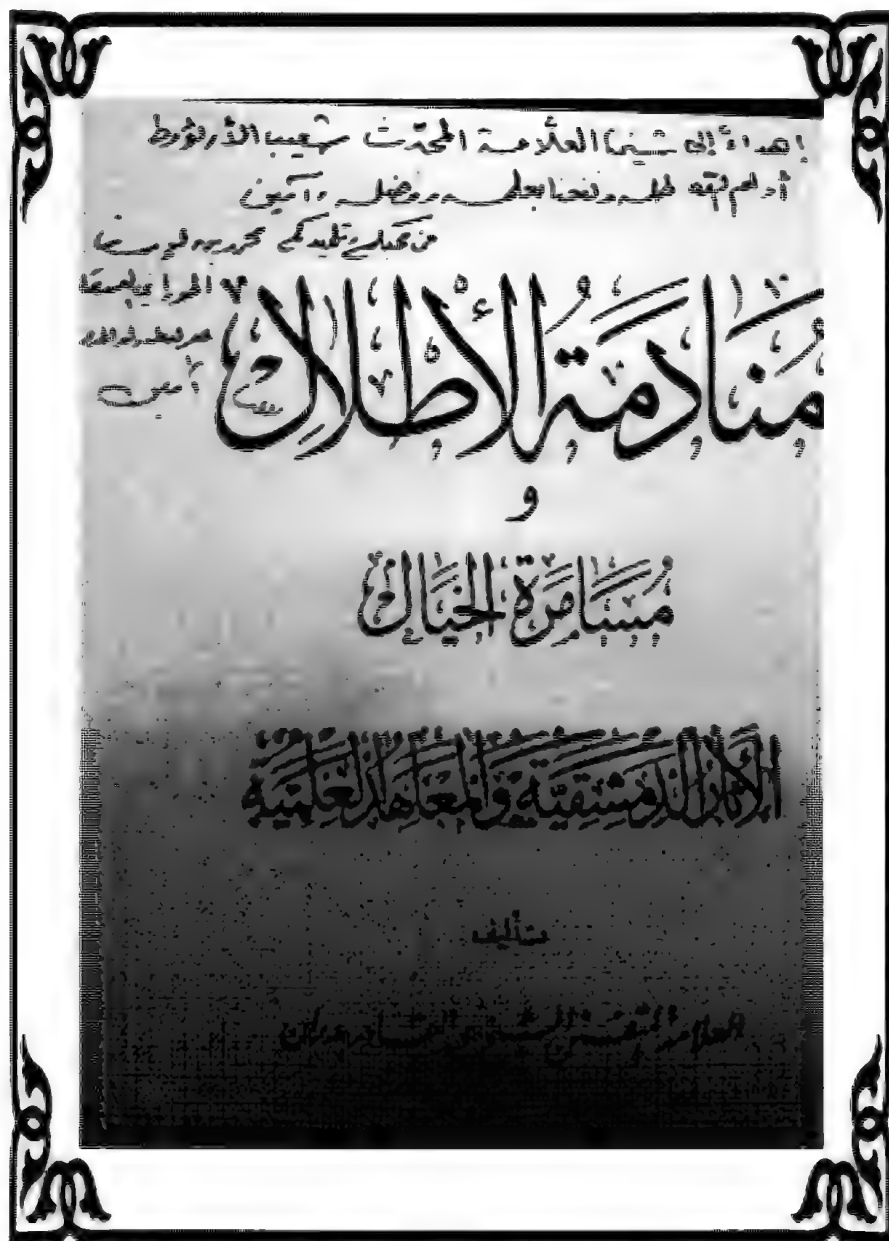 إهداء إلى شيخنا العلامة المحدّث شعيب الأرنؤوط
أدام الله ظله ونفعنا بعلمه وفضله، آمين
من محبكم وتلميذكم
آمين
مُنَادَمَةُ الأَطْلَالِ
و
مُسَامَرَةُ الخَيَالِ
الآثَارُ الدِّمَشْقِيَّةُ وَالمَعَاهِدُ العِلْمِيَّةُ
تأليف
العلامة الشيخ عبد القادر بدران